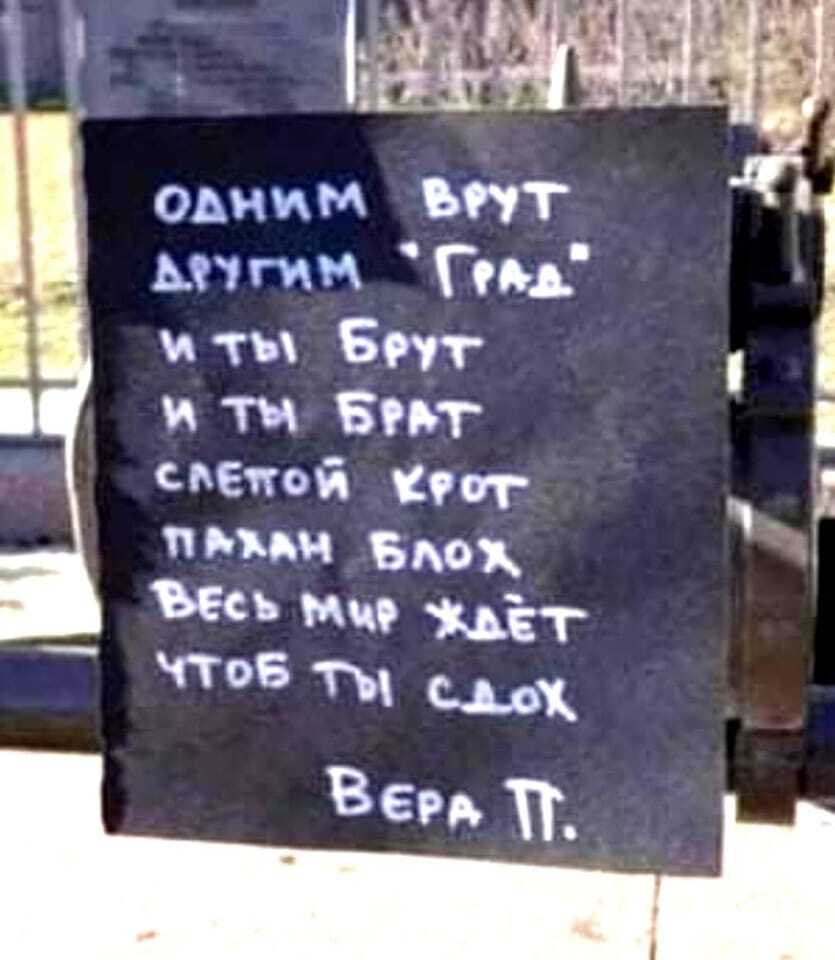 ОДНИМ ВРУТ
ДРУГИМ "ГРАД"
И ТЫ БРУТ
И ТЫ БРАТ
СЛЕПОЙ КРОТ
ПАХАН БЛОХ
ВЕСЬ МИР ЖДЁТ
ЧТОБ ТЫ СДОХ
ВЕРА П.